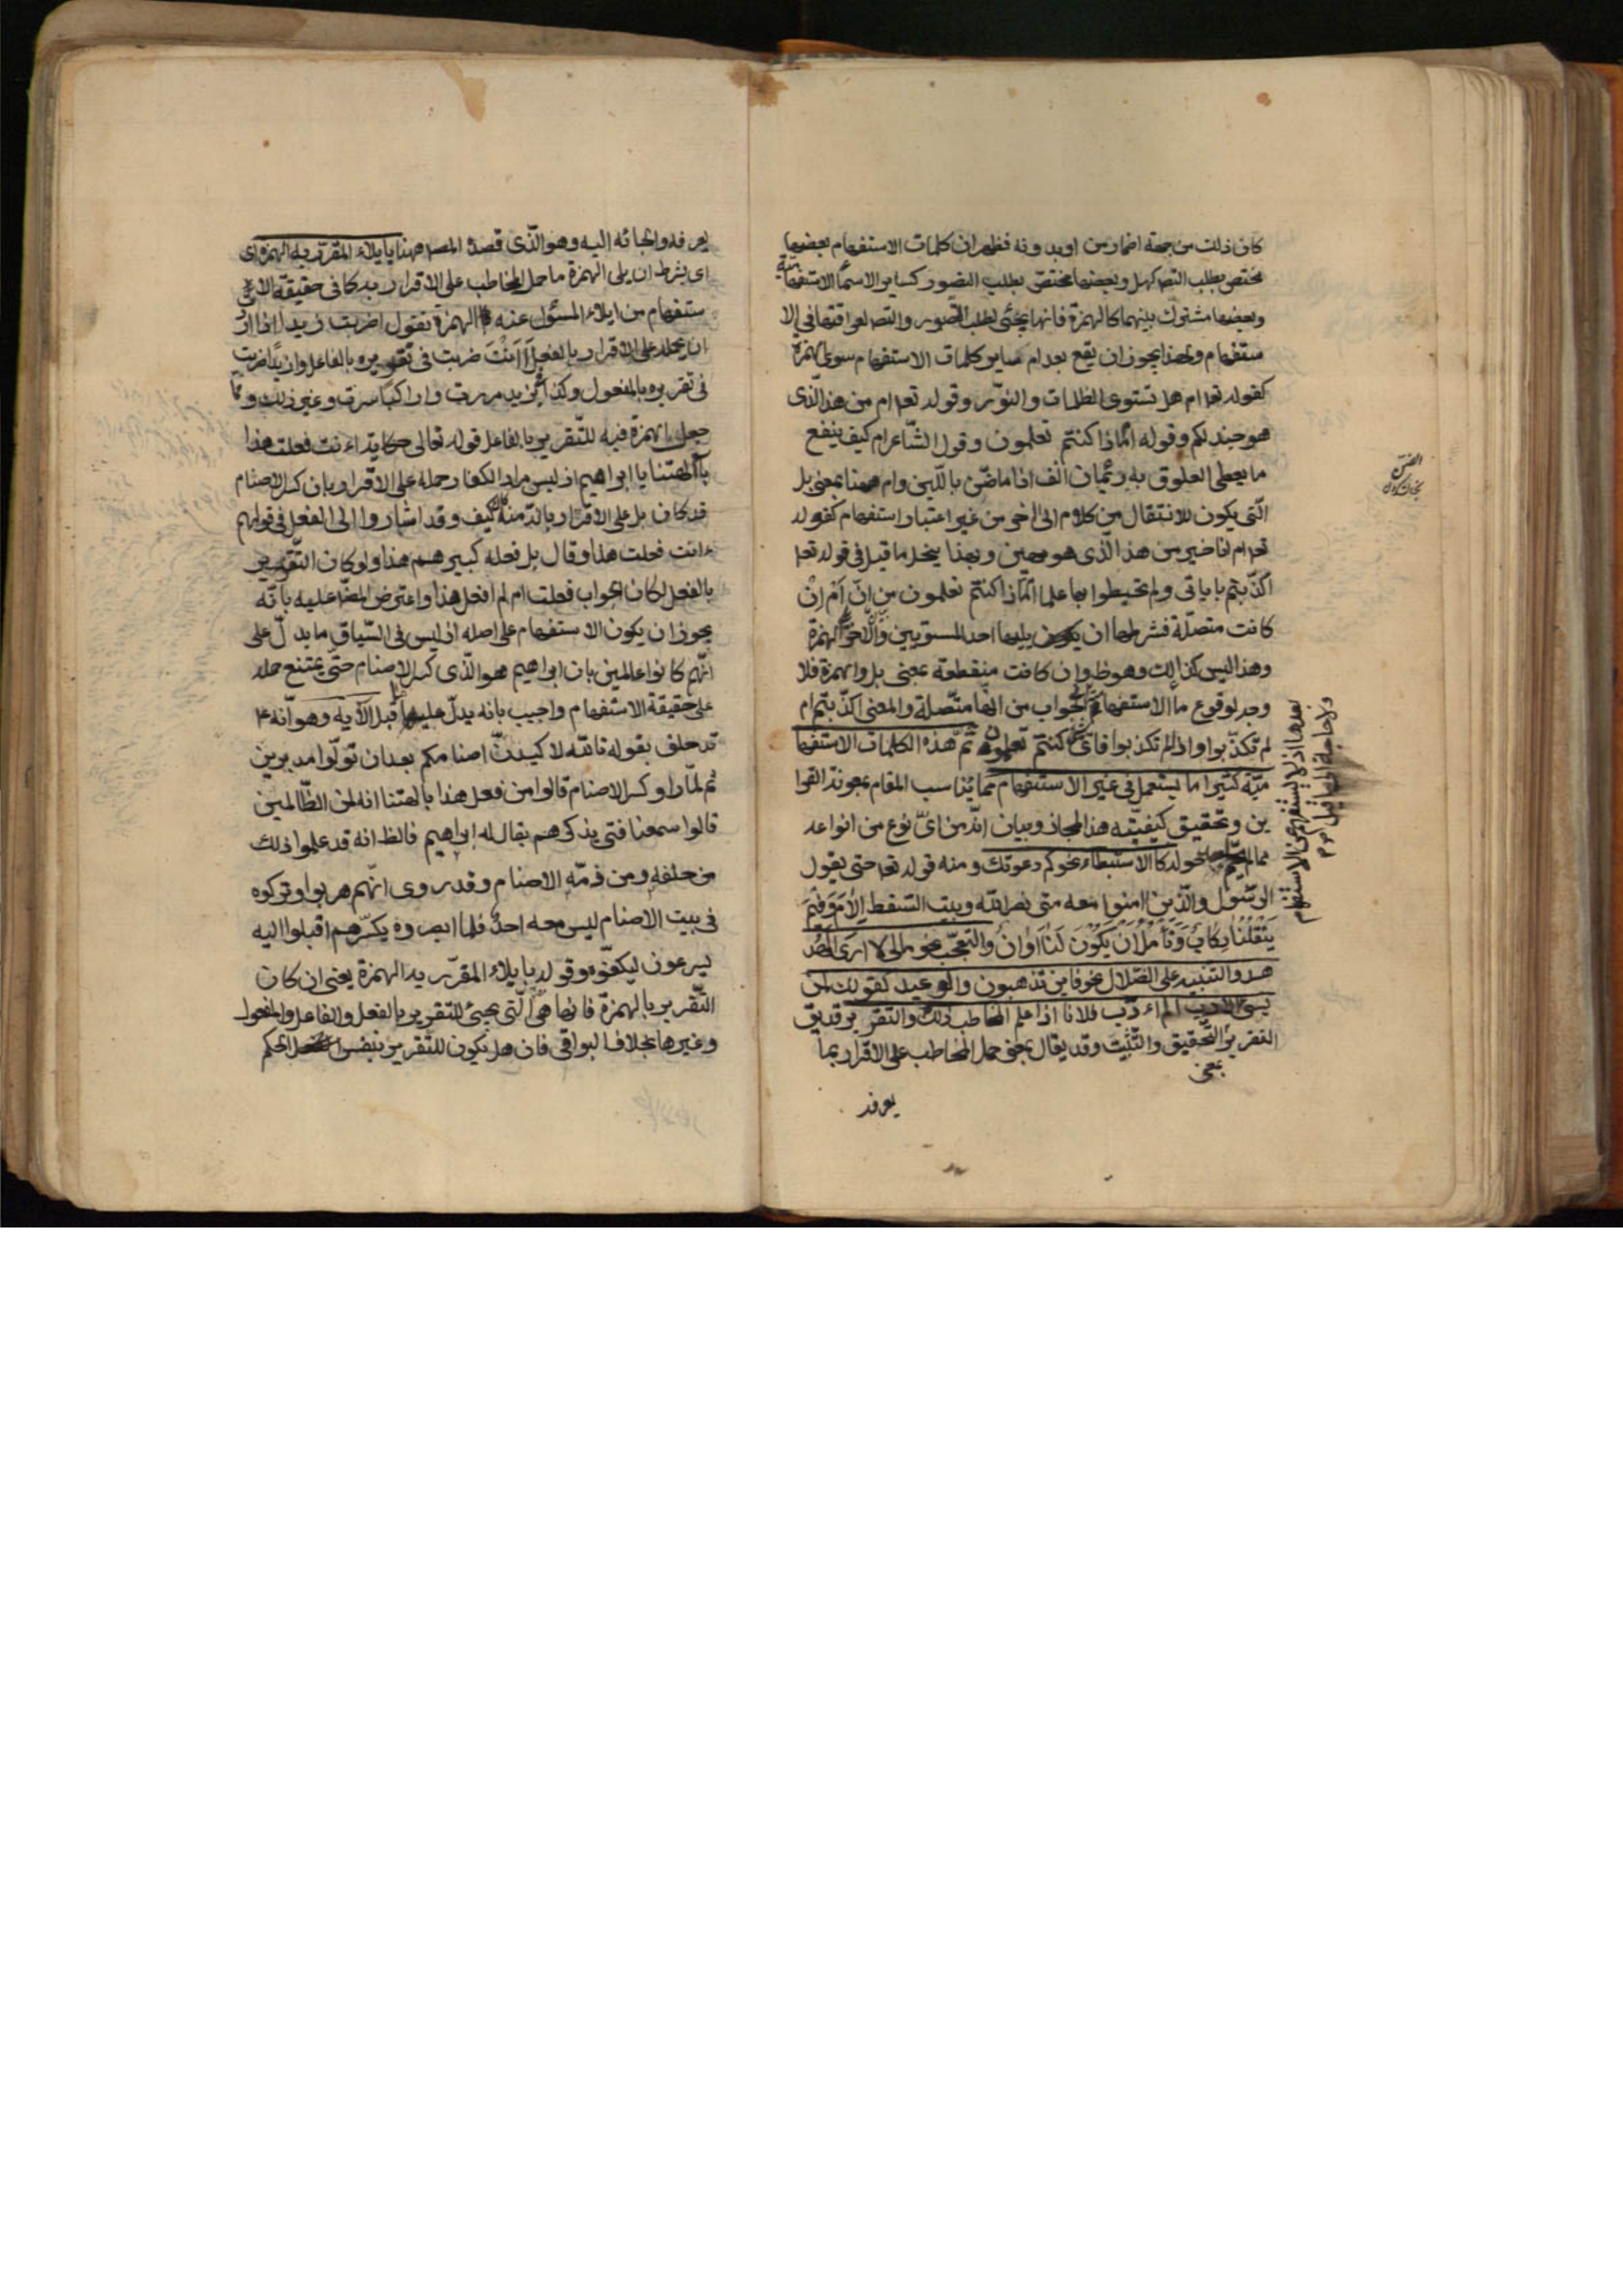 كان ذلك من جهة اضمار من او بدونه فظهر ان كلمات الاستفهام بعضها
مختص بطلب التصد كهل وبعضها مختص بطلب التصور كساير الاسماء الاستفهامية
وبعضها مشترك بينهما كالهمزة فانها يجئ لطلب التصور والتصد لعراقتها فى الا
ستفهام ولهذا يجوز ان يقع بعد ام ساير كلمات الاستفهام سوى الهمزة
كقوله تعا ام هل تستوى الظلمات والنوّر وقوله تعا ام من هذا الّذى
هو جند لكم وقوله امّاذا كنتم تعلمون وقول الشّاعر ام كيف ينفع
ما يعطى العلوق به رئمان انف اذا ما ضنّ باللّبن وام ههنا بمعنى بل
الّتى يكون للانتقال من كلام الى اخر من غير اعتبار استفهام كقوله
تعا ام انا خير من هذا الّذى هو مهين وبهذا ينحل ما قيل فى قوله تعا
اكذّبتم باياتى ولم تحيطوا بها علما امّاذا كنتم تعلمون من انّ اَمْ اِنْ
كانت متصلّة فشرطها ان يليها احد المستويين والاخر الهمزة
وهذا ليس كذالك وهو ظ وان كانت منقطعة بمعنى بل والهمزة فلا
وجه لوقوع ما الاستفهامية الجواب من انها متّصلة والمعنى اكذّبتم ام
بعدها اذ لا يستفهم عن الاستفهام
ولا حاجة الى ما قيل
لم تكذّبوا واذا لم تكذبوا فاىّ شئ كنتم تعلمون ثمّ هذه الكلمات الاستفها
ميّة كثيرا ما يستعمل فى غير الاستفهام مما يناسب المقام بمعونة القرا
ين وتحقيق كيفيّته هذا المجاز وبيان انّه من اىّ نوع من انواعه
مما لم يحم احد حوله كالاستبطاء نحو كم دعوتك ومنه قوله تعا حتى يقول
الرّسول والّذين امنوا معه متى نصر اللّه وبيت السّقط اِلاٰمَ وَفِيْمَ
يَنْقُلُنٰا رِكٰابٌ وَنَأمُلُ اَنْ يَكُوْنَ لَنٰا اَوٰانُ والتعجّب نحو مالى لا ارى الهُد
هد والتنبيه على الضّلال نحو فاين تذهبون والوعيد كقولك لمن
يسئ الادب الم اءدّب فلانا اذا علم المخاطب ذلك والتقرير قد يق
التقرير بمعنى التّحقيق والتّثبيت وقد يقال بمعنى حمل المخاطب على الاقرار بما
يعرفه
يعرفه والجائه اليه وهو الّذى قصده المصه ههنا بايلاء المقرّر به الهمزة اى
اى بشرط ان يلى الهمزة ما حمل المخاطب على الاقرار به كما فى حقيقة الا
ستفهام من ايلاء المسئول عنه الهمزة تقول اضربت زيدا اذا ارد
ان يحمله على الاقرار بالفعل أَاَنْتَ ضربت فى تقريره بالفاعل وازيدا ضربت
فى تقريره بالمفعول وكذا ابزيد مررت واراكبًا سرت وغير ذلك ومما
جعل الهمزة فيه للتّقرير بالفاعل قوله تعالى حكاية ءانت فعلت هذا
باٰلهتنا يا ابراهيم اذ ليس مراد الكفار حمله على الاقرار بان كسر الاصنام
قد كان بل على الاقرار بانّه منه كان كيف وقد اشاروا الى الفعل فى قولهم
ءانت فعلت هذا وقال بل فعله كبيرهم هذا ولو كان التّقرير
بالفعل لكان الجواب فعلت ام لم افعل هذا واعترض المصّ عليه بانّه
يجوز ان يكون الاستفهام على اصله اذ ليس فى السّياق ما يدلّ على
انّهم كانوا عالمين بان ابراهيم هو الّذى كسر الاصنام حتّى يمتنع حمله
على حقيقة الاستفهام واجيب بانه يدلّ عليه ما قبل الآية وهو انّه
قد حلف بقوله تاللّه لاكيدنّ اصنامكم بعد ان تولّوا مدبرين
ثم لمّا راوكسر الاصنام قالوا من فعل هذا بالهتنا انه لمن الظّالمين
قالوا سمعنا فتى يذكرهم يقال له ابراهيم فالظ انه قد علموا ذلك
من حلفه ومن ذمّه الاصنام وقد روى انّهم هربوا وتركوه
فى بيت الاصنام ليس معه احدٌ فلما ابصروه يكسّرهم اقبلوا اليه
يسرعون ليكفوّه وقوله بايلاء المقرّر به الهمزة يعنى ان كان
التّقرير بالهمزة فانها هى الّتى يجئ للتّقرير بالفعل والفاعل والمفعول
وغيرها بخلاف البواقى فان هل يكون للتقرير بنفس الحكم